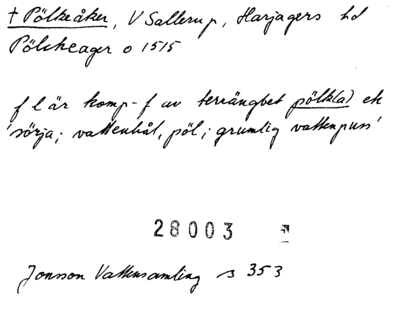 † Pölkeåker, V Sallerup, Harjagers hd
Pölckeager o 1515
f l är komp-f av terrängbet pölk(a) etc
'sörja; vattenhål, pöl; grumlig vattenpuss'
28003
Jonsson Vattensamling s 353